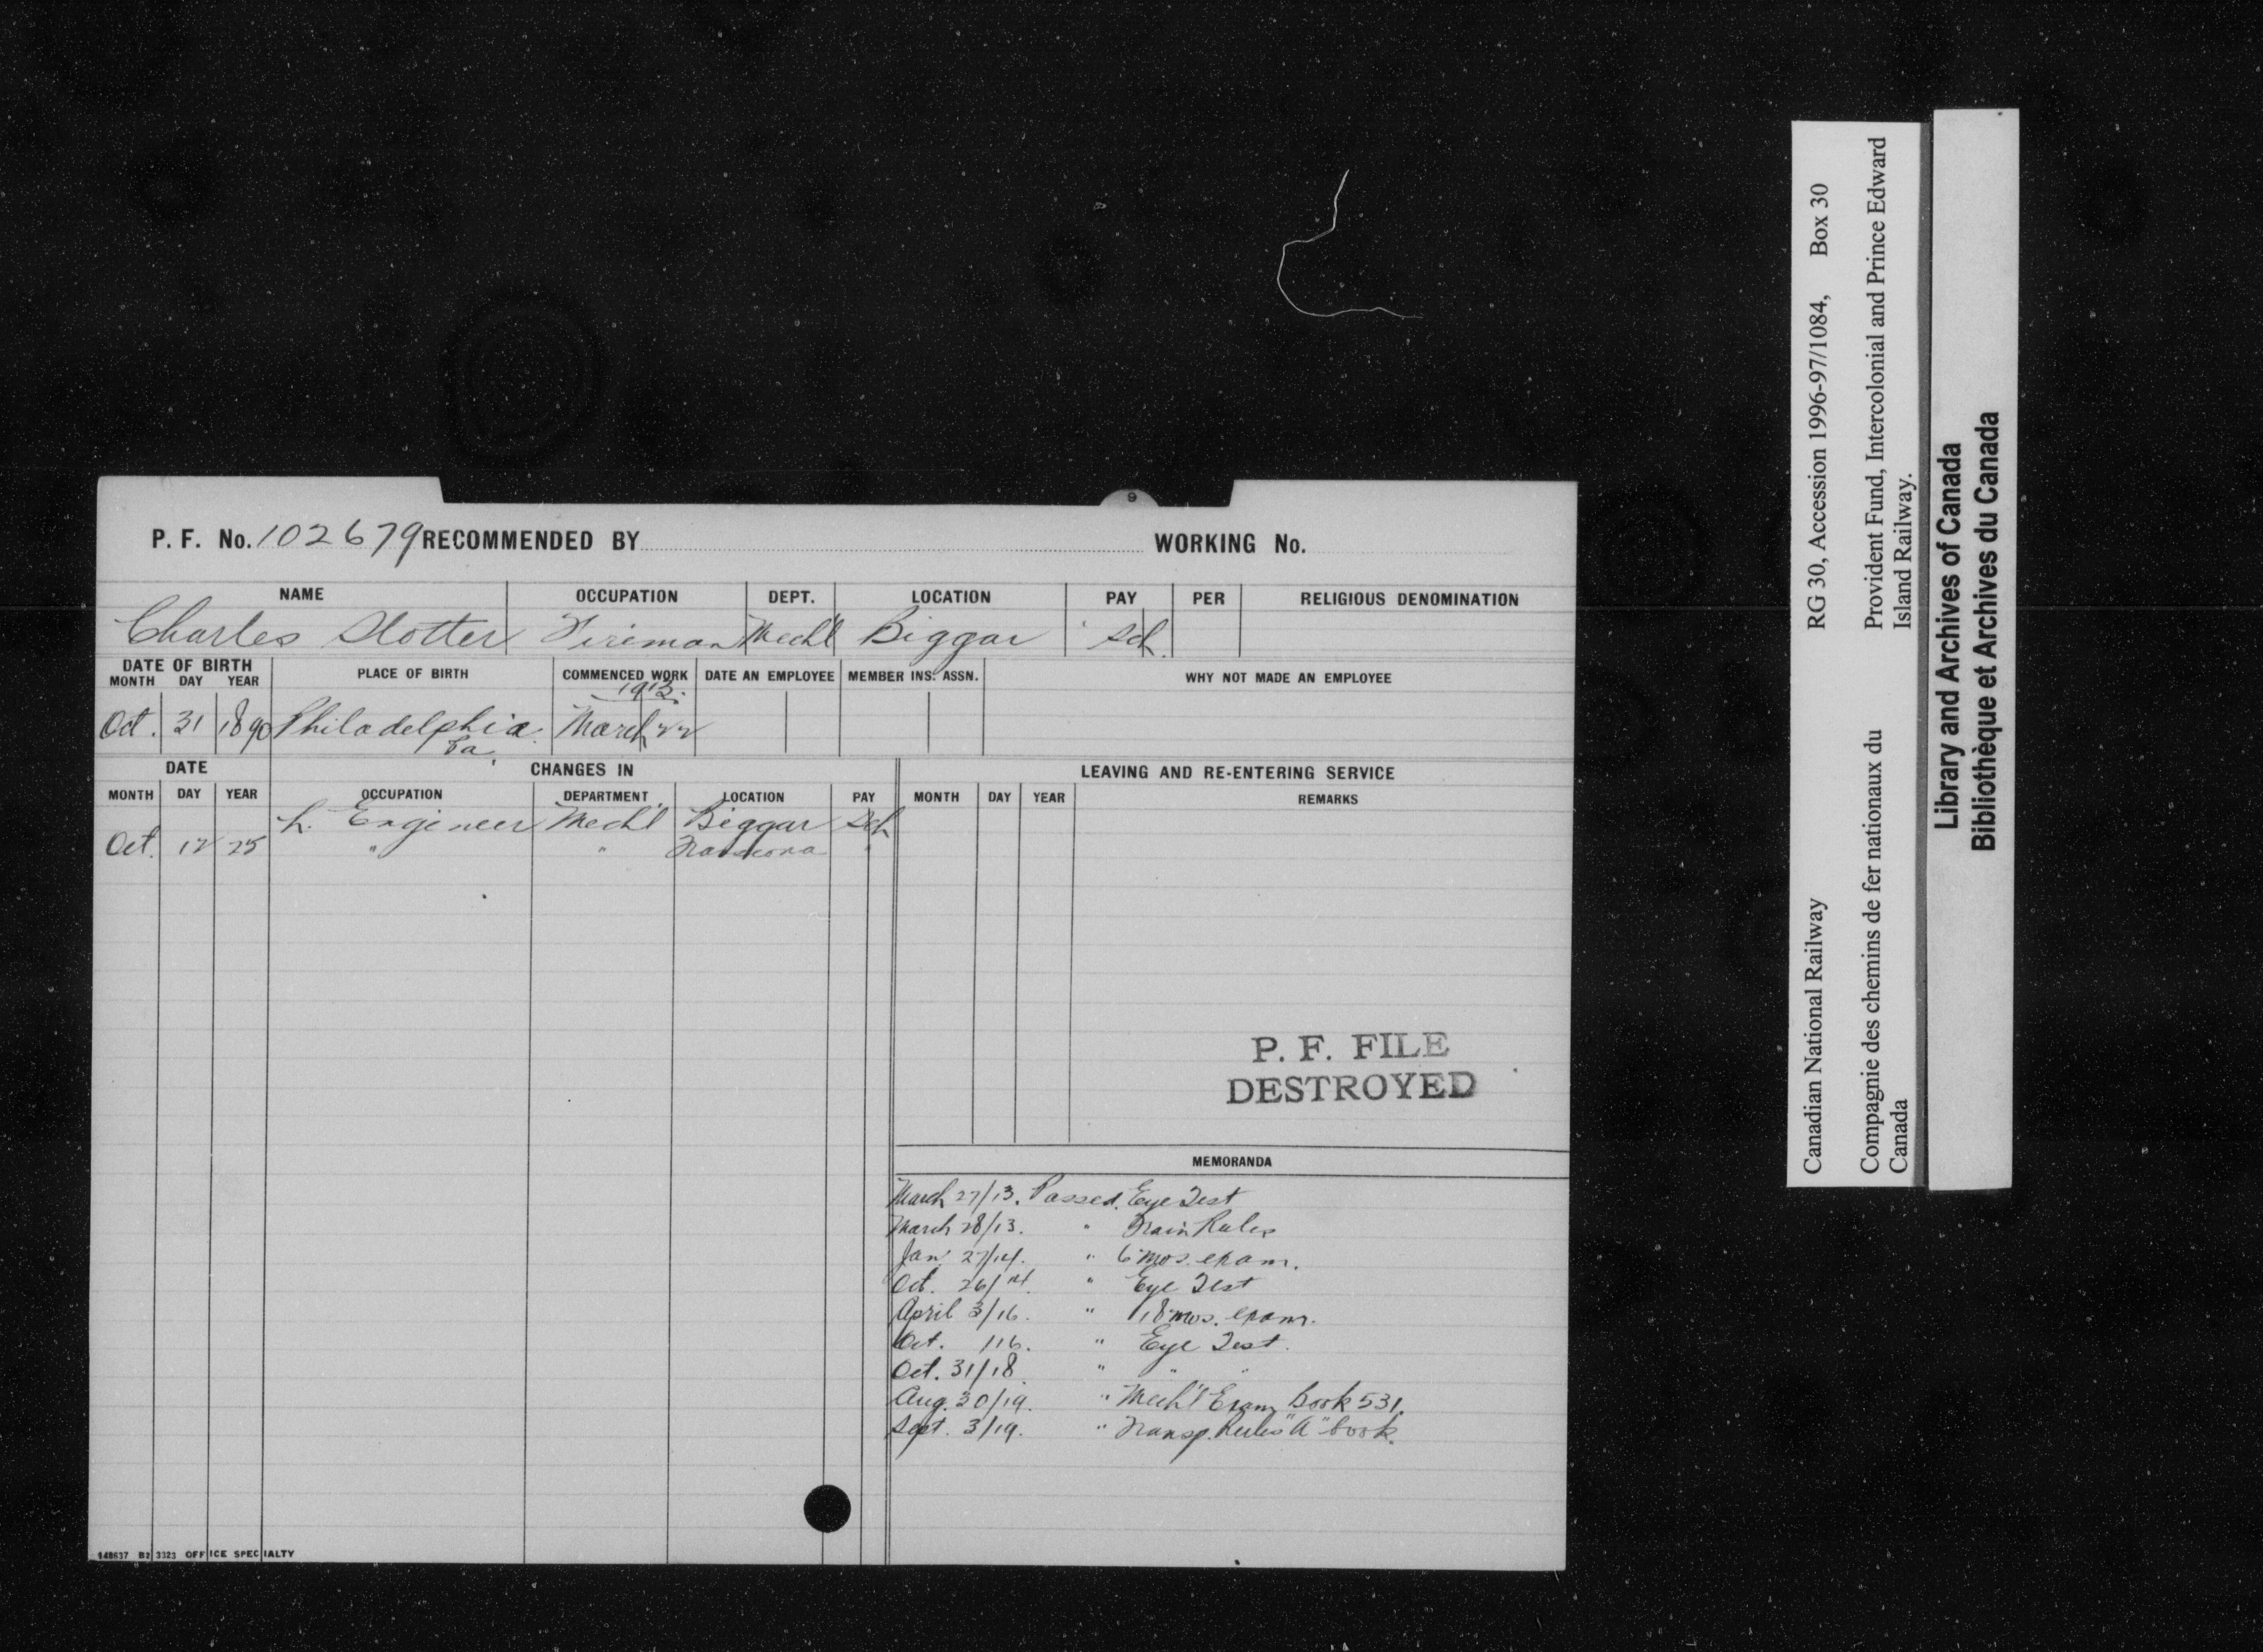 9
P. F. No. 102679 RECOMMENDED BY WORKING No.
NAME OCCUPATION DEPT. LOCATION PAY PER RELIGIOUS DENOMINATION
Charles Slotter Fireman Mech'l Biggar Sch.
DATE OF BIRTH PLACE OF BIRTH COMMENCED WORK DATE AN EMPLOYEE MEMBER INS. ASSN. WHY NOT MADE AN EMPLOYEE
MONTH DAY YEAR
1913.
Oct. 31 1890 Philadelphia March 22
Pa.
DATE CHANGES IN LEAVING AND RE-ENTERING SERVICE
MONTH DAY YEAR OCCUPATION DEPARTMENT LOCATION PAY MONTH DAY YEAR REMARKS
L. Engineer Mechl Biggar Sch
Oct. 12 25 " " Transcona "
P. F. FILE
DESTROYED
MEMORANDA
March 27/13. Passed. Eye Test
March 28/13. " Train Rules
Jan 27/14. " 6 mos. exam.
Oct. 26/14. " Eye Test
April 3/16. " 18 mos. exam.
Oct. /16. " Eye Test.
Oct. 31/18. " " "
Aug. 30/19. " Mech'l Exam Book 531.
Sept. 3/19. " Transp. Rules "A" book.
148637 B2 3323 OFFICE SPECIALTY
Canadian National Railway RG 30, Accession 1996-97/1084, Box 30
Compagnie des chemins de fer nationaux du Provident Fund, Intercolonial and Prince Edward
Canada Island Railway.
Library and Archives of Canada
Bibliothèque et Archives du Canada